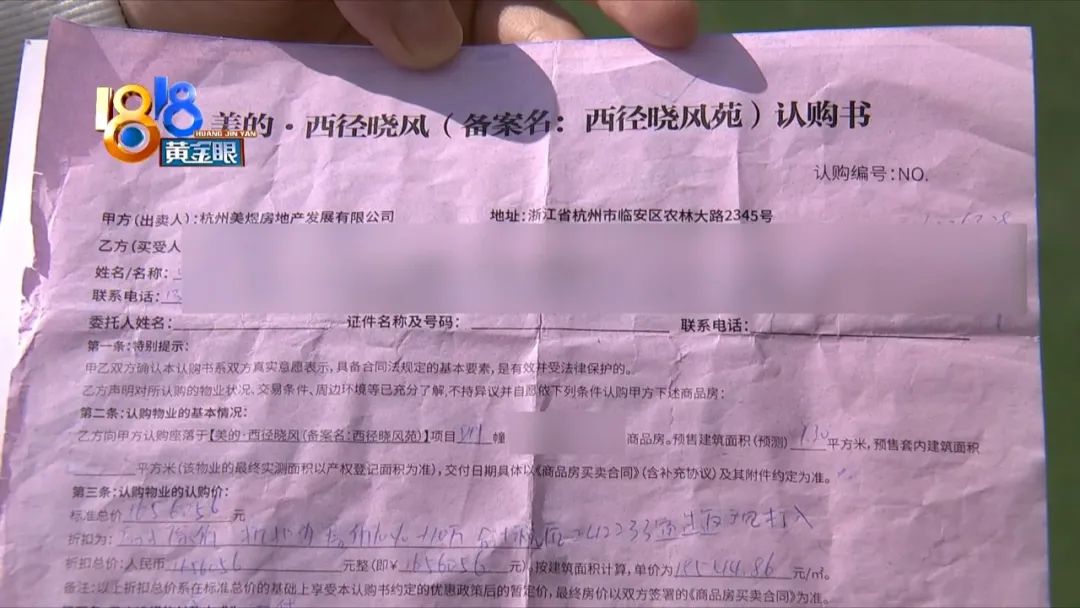 1818
HUANG JIN YAN
黄金眼
美的·西径晓风（备案名：西径晓风苑）认购书
认购编号:NO.
甲方(出卖人):杭州美煜房地产发展有限公司 地址:浙江省杭州市临安区农林大路2345号
乙方(买受人
姓名/名称:
联系电话:13
委托人姓名: 证件名称及号码: 联系电话:
第一条:特别提示:
甲乙双方确认本认购书系双方真实意愿表示,具备合同法规定的基本要素,是有效并受法律保护的。
乙方声明对所认购的物业状况、交易条件、周边环境等已充分了解,不持异议并自愿依下列条件认购甲方下述商品房:
第二条:认购物业的基本情况:
乙方向甲方认购座落于【美的·西径晓风(备案名:西径晓风苑)】项目 幢 商品房。预售建筑面积(预测) 平方米,预售套内建筑面积
平方米(该物业的最终实测面积以产权登记面积为准),交付日期具体以《商品房买卖合同》(含补充协议)及其附件约定为准。
第三条:认购物业的认购价:
标准总价 1656056 元
折扣为:
折扣总价:人民币 1656056 元整(即¥ 1656056 元),按建筑面积计算,单价为 18544.86 元/㎡。
备注:以上折扣总价系在标准总价的基础上享受本认购书约定的优惠政策后的暂定价,最终房价以双方签署的《商品房买卖合同》为准。